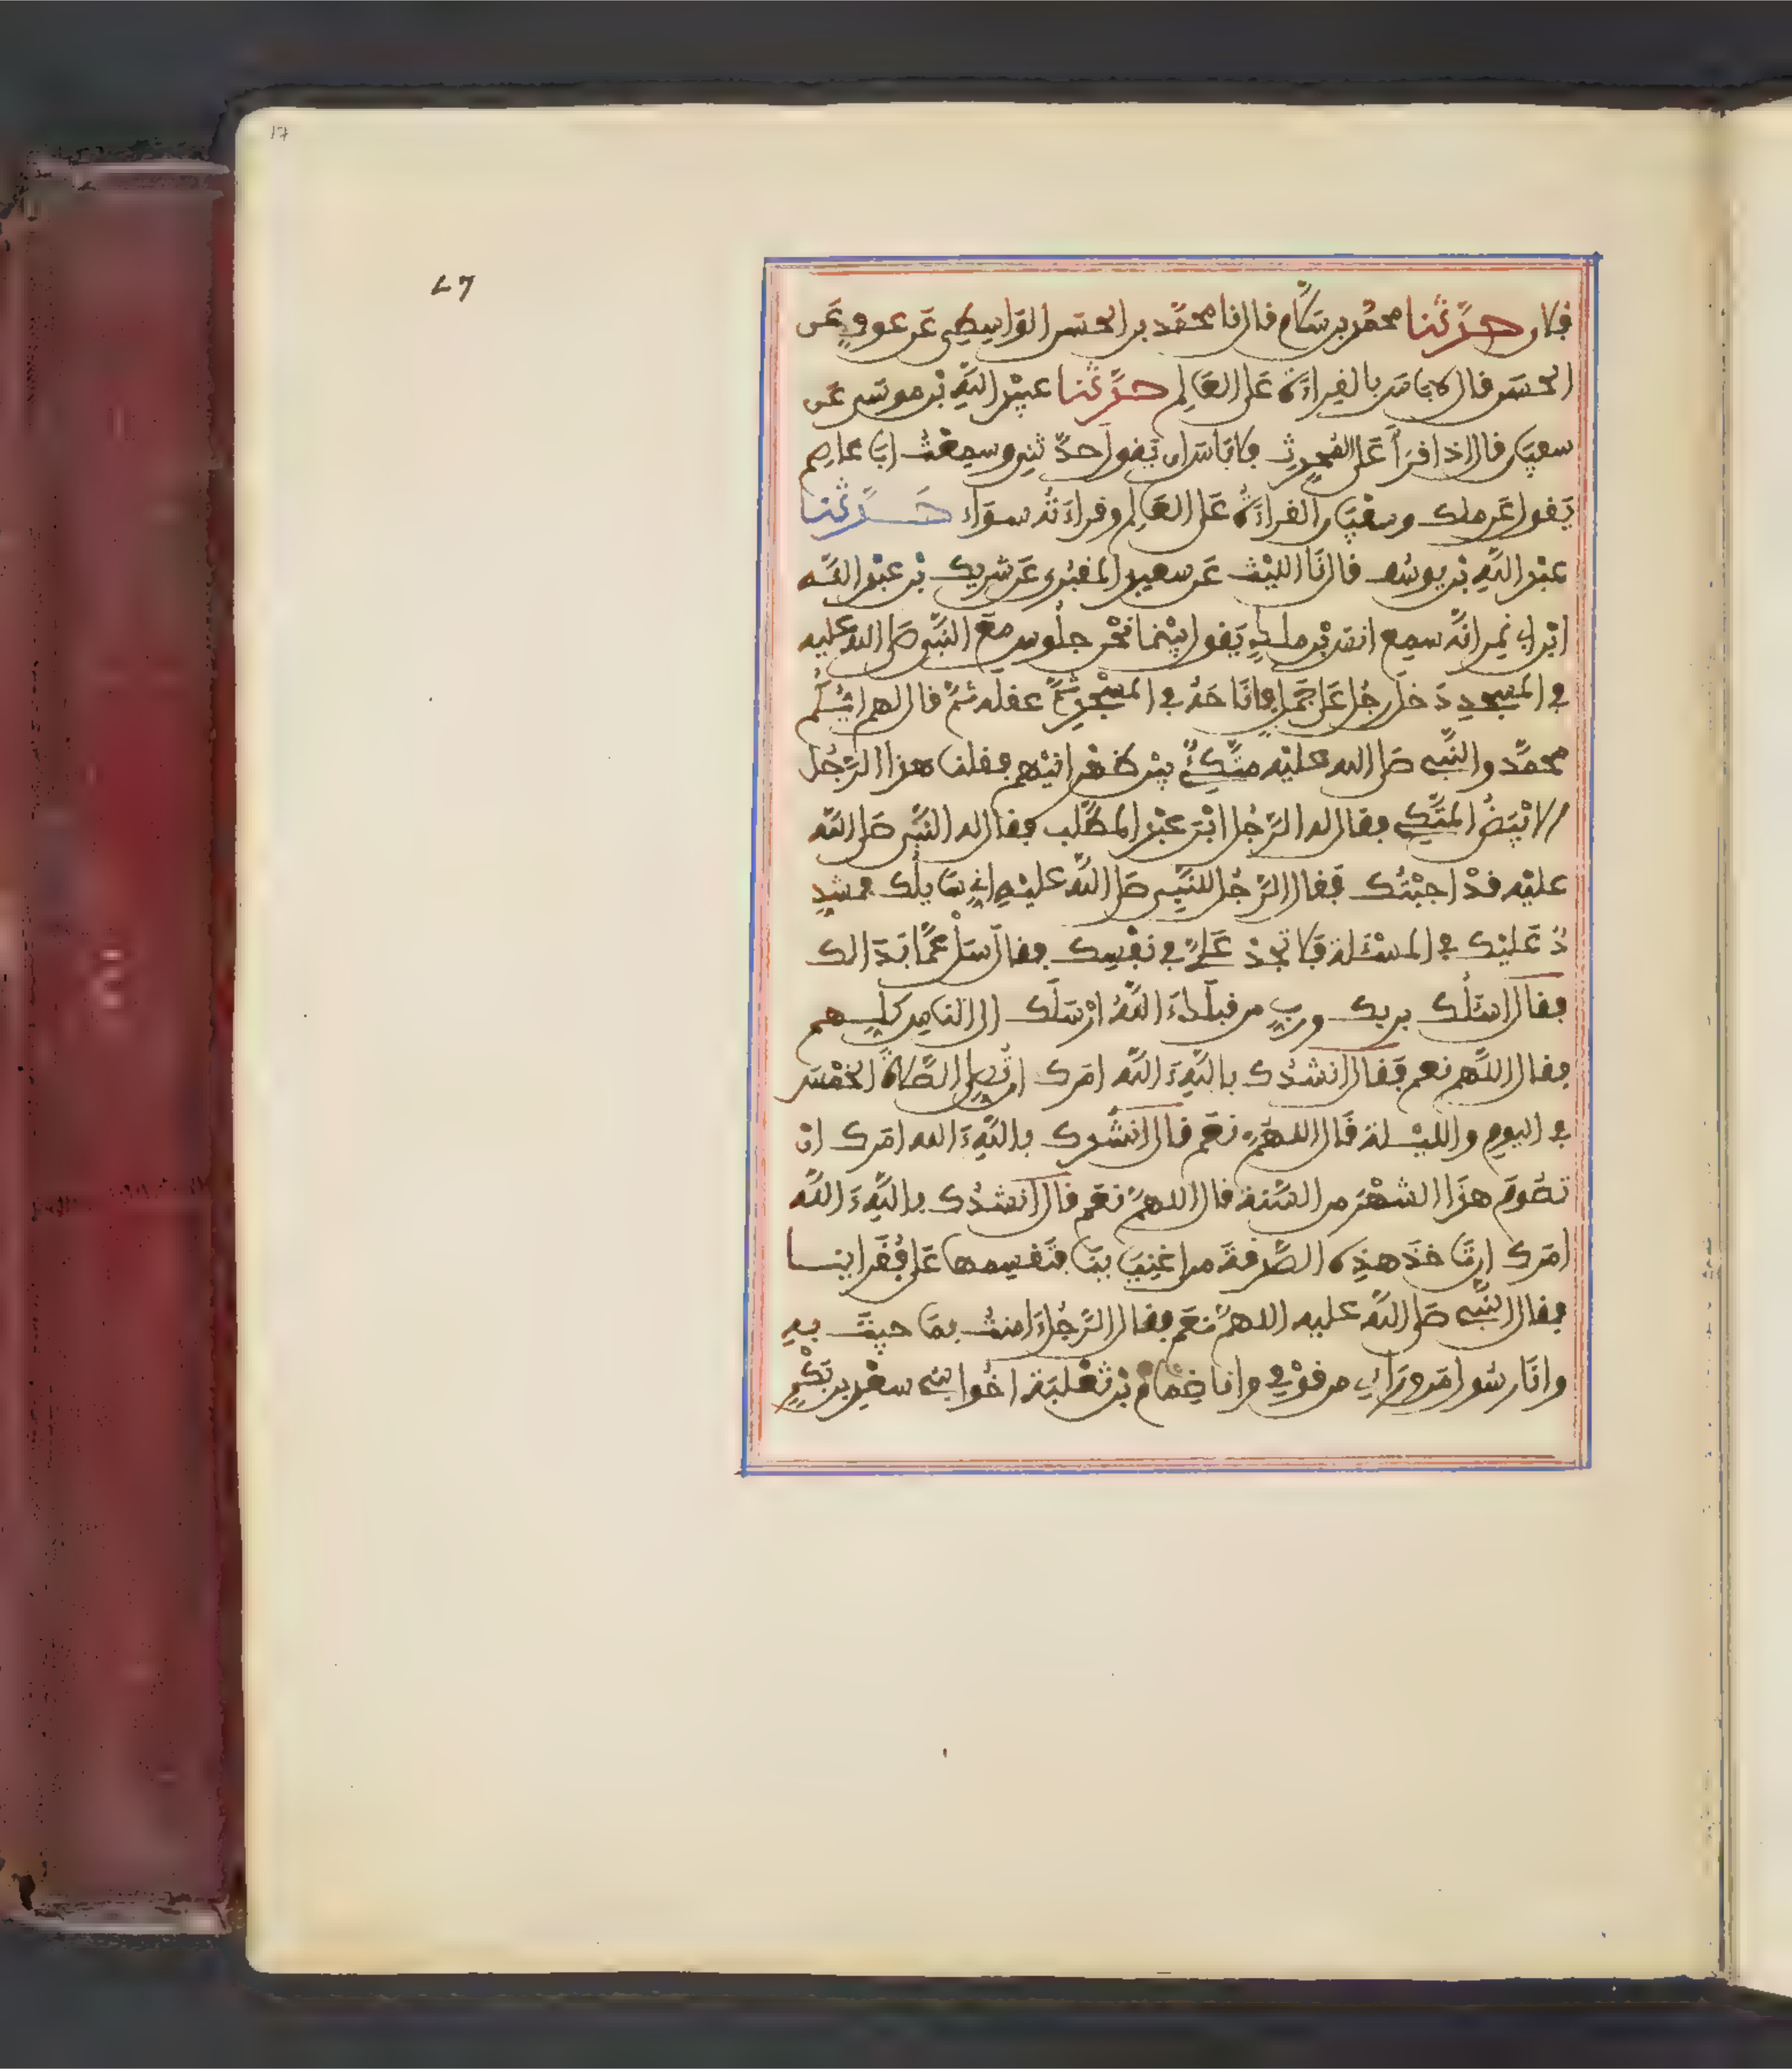 17
27
فلان حدثنا محمد بن سلام قال انا محمد بن الحسن الواسطي عن عوف عن
الحسن قال لا باس بالقراءة على العالم حدثنا عبيد الله بن موسى عن
سعين قال اذا قرأ على المحدث فلا باس ان يقول حدثني وسمعت ابا عاصم
يقول عن ملك وسفين القراءة على العالم وقراءته سواء حدثنا
عبد الله بن يوسف قال انا الليث عن سعيد المقبري عن شريك بن عبد الله
ابن ابي نمر انه سمع انس بن ملك يقول بينما نحن جلوس مع النبي صلى الله عليه
في المسجد دخل رجل على جمل فاناخه في المسجد ثم عقله ثم قال لهم ايكم
محمد والنبي صلى الله عليه متكئ بين ظهرانيهم فقلنا هذا الرجل
الابيض المتكي فقال له الرجل ابن عبد المطلب فقال له النبي صلى الله
عليه قد اجبتك فقال الرجل للنبي صلى الله عليه اني سايلك فمشد
د عليك في المسئلة فلا تجد علي في نفسك فقال سل عما بدا لك
فقال اسئلك بربك ورب من قبلك ءالله ارسلك الى الناس كلهم
فقال اللهم نعم فقال انشدك بالله ءالله امرك ان تصلي الصلاة الخمس
في اليوم والليلة قال اللهم نعم قال انشدك بالله ءالله امرك ان
تصوم هذا الشهر من السنة قال اللهم نعم قال انشدك بالله ءالله
امرك ان تاخذ هذه الصدقة من اغنياينا فتقسمها على فقراينا
فقال النبي صلى الله عليه اللهم نعم فقال الرجل ءامنت بما جيت به
وانا رسول من وراي من قومي وانا ضمام بن ثعلبة اخوا بني سعد بن بكر